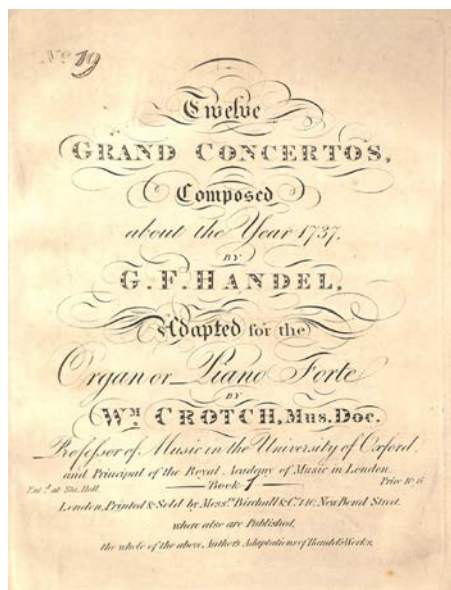 No. 19
Twelve
GRAND CONCERTOS,
Composed
about the Year 1737.
BY
G. F. HANDEL,
Adapted for the
Organ or Piano Forte
BY
Wm. CROTCH, Mus. Doc.
Professor of Music in the University of Oxford
and Principal of the Royal Academy of Music in London.
Ent.d at Sta. Hall. Book 1 Price
London, Printed & Sold by Messrs. Birchall & Co. 140, New Bond Street.
where also are Published,
the whole of the above Author's Adaptations of Handel's Works.